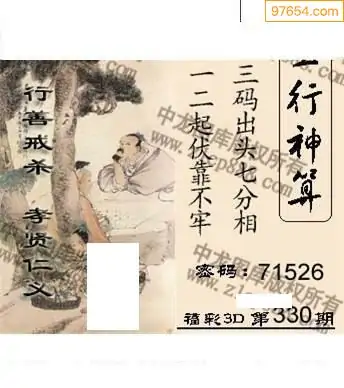 97654.com
行善戒杀 孝贤仁义
三码出头七分相
一二起伏靠不牢
行神算
密码：71526
福彩3D 第330期
中龙图库版权所有
中龙图库版权所有